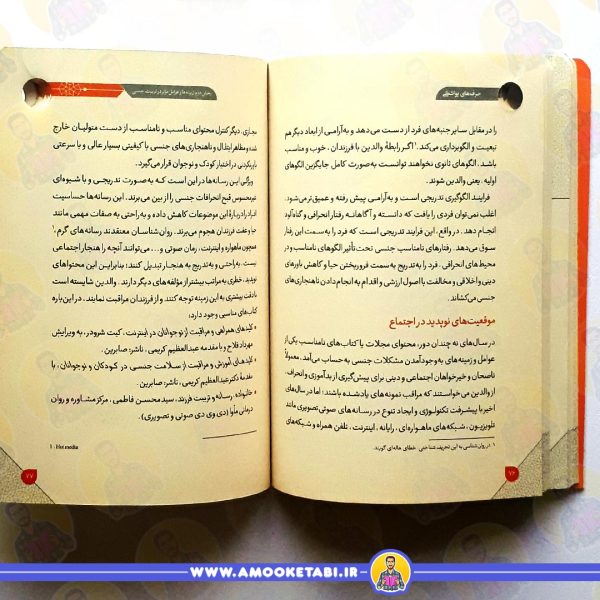 حرف‌های یواشکی
را در مقابل سایر جنبه‌های فرد از دست می دهد و به‌آرامی از ابعاد دیگر هم
تبعیت و الگوبرداری می‌کند.۱ اگر رابطهٔ والدین با فرزندان، خوب و مناسب
باشد، الگوهای ثانوی نخواهند توانست به صورت کامل جایگزین الگوهای
اولیه، یعنی والدین شوند.
فرایند الگوگیری تدریجی است و به آرامی پیش رفته و عمیق‌تر می‌شود.
اغلب نمی‌توان فردی را یافت که دانسته و آگاهانه، رفتار انحرافی و گناه‌آلود
انجام دهد. در واقع، این فرایند تدریجی است که فرد را به سمت این رفتار
سوق می‌دهد. رفتارهای نامناسب جنسی تحت تأثیر الگوهای نامناسب و در
محیط‌های انحرافی، فرد را به تدریج به سمت فروریختن حیا و کاهش باورهای
دینی و اخلاقی و مخالفت با اصول ارزشی و اقدام به انجام دادن ناهنجاری‌های
جنسی می‌کشاند.
موقعیت‌های نوپدید در اجتماع
در سال‌های نه چندان دور، محتوای مجلات یا کتاب‌های نامناسب یکی از
عوامل و زمینه های به‌وجود‌آمدن مشکلات جنسی به حساب می‌آمد. معمولاً
ناصحان و خیرخواهان اجتماعی و دینی برای پیش‌گیری از بدآموزی و انحراف،
از والدین می خواستند که مراقب نمونه‌های یادشده باشند، اما در سال‌های
اخیر با پیشرفت تکنولوژی و ایجاد تنوع در رسانه های صوتی تصویری مانند
تلویزیون، شبکه‌های ماهواره‌ای، رایانه، اینترنت، تلفن همراه و شبکه‌های
۱. در روان‌شناسی به این تحریف شناختی، خطای هاله‌ای گویند.
۷۶
مجازی، دیگر کنترل محتوای مناسب و نامناسب از دست متولیان خارج
شده و مظاهر ابتذال و ناهنجاری‌های جنسی با کیفیتی بسیار عالی و با سرعتی
باورنکردنی در اختیار کودک و نوجوان قرار می‌گیرد.
ویژگی این رسانه‌ها در این است که به‌صورت تدریجی و با شیوه‌ای
نامحسوس قبح انحرافات جنسی را از بین می‌برند. این رسانه‌ها حساسیت
افراد را دربارهٔ این موضوعات کاهش داده و به راحتی به صفات مهمی مانند
حیا و عفت فرزندان هجوم می‌برند. روان‌شناسان معتقدند رسانه‌های گرم،۱
همچون ماهواره و اینترنت، رمان صوتی و... می‌توانند آنچه را هنجار اجتماعی
نیست، به‌راحتی و به‌تدریج به هنجار تبدیل کنند؛ بنابراین این محتواهای
نوپدید، خطری به مراتب بیشتر از مؤلفه‌های دیگر دارند. والدین شایسته است
با دقت بیشتری به این زمینه توجه کنند و از فرزندان مراقبت نمایند. در این‌باره
کتاب‌های مناسبی وجود دارد:
• کلیدهای همراهی و مراقبت از نوجوانان در اینترنت، کیت شرودر، به ویرایش
مهرداد فلاح و با مقدمه عبدالعظیم کریمی، ناشر: صابرین.
• کلیدهای آموزش و مراقبت از سلامت جنسی در کودکان و نوجوانان، با
مقدمهٔ دکتر عبدالعظیم کریمی، ناشر: صابرین.
• خانواده، رسانه و تربیت فرزند، سید محسن فاطمی، مرکز مشاوره و روان
درمانی مأوا (دی وی دی صوتی و تصویری).
1. Hot media
۷۷
WWW.AMOOKETABI.IR